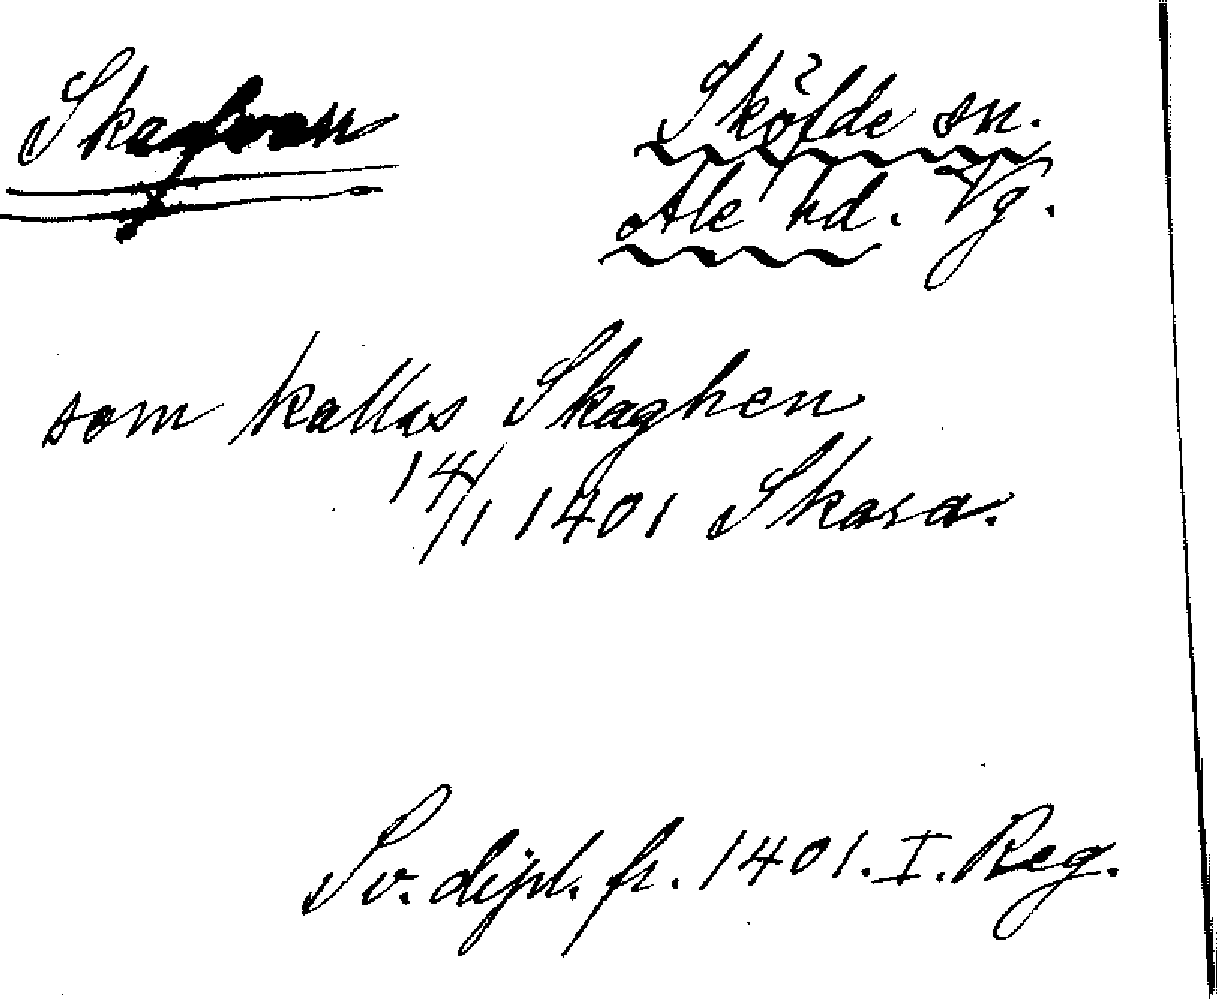 Sköfde sn.
Ale hd. Vg.
som kallas Skaghen
14/1 1401 Skara.
Sv. dipl. fr. 1401. I. Reg.